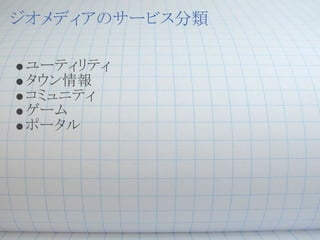 ジオメディアのサービス分類
●ユーティリティ
●タウン情報
●コミュニティ
●ゲーム
●ポータル